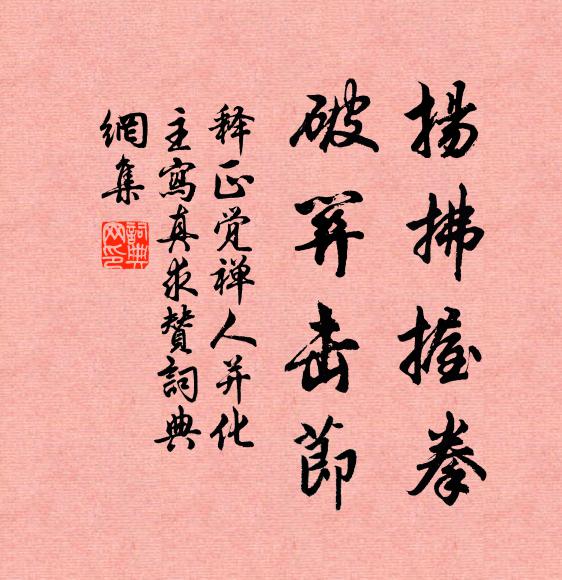 揚拂握拳
破羿击節
释正觉禅人并化
主寫真求贊詞典
網集
詞典
网印